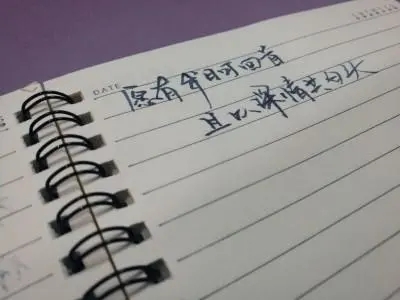 DATE
愿有岁月可回首
且以深情共白头